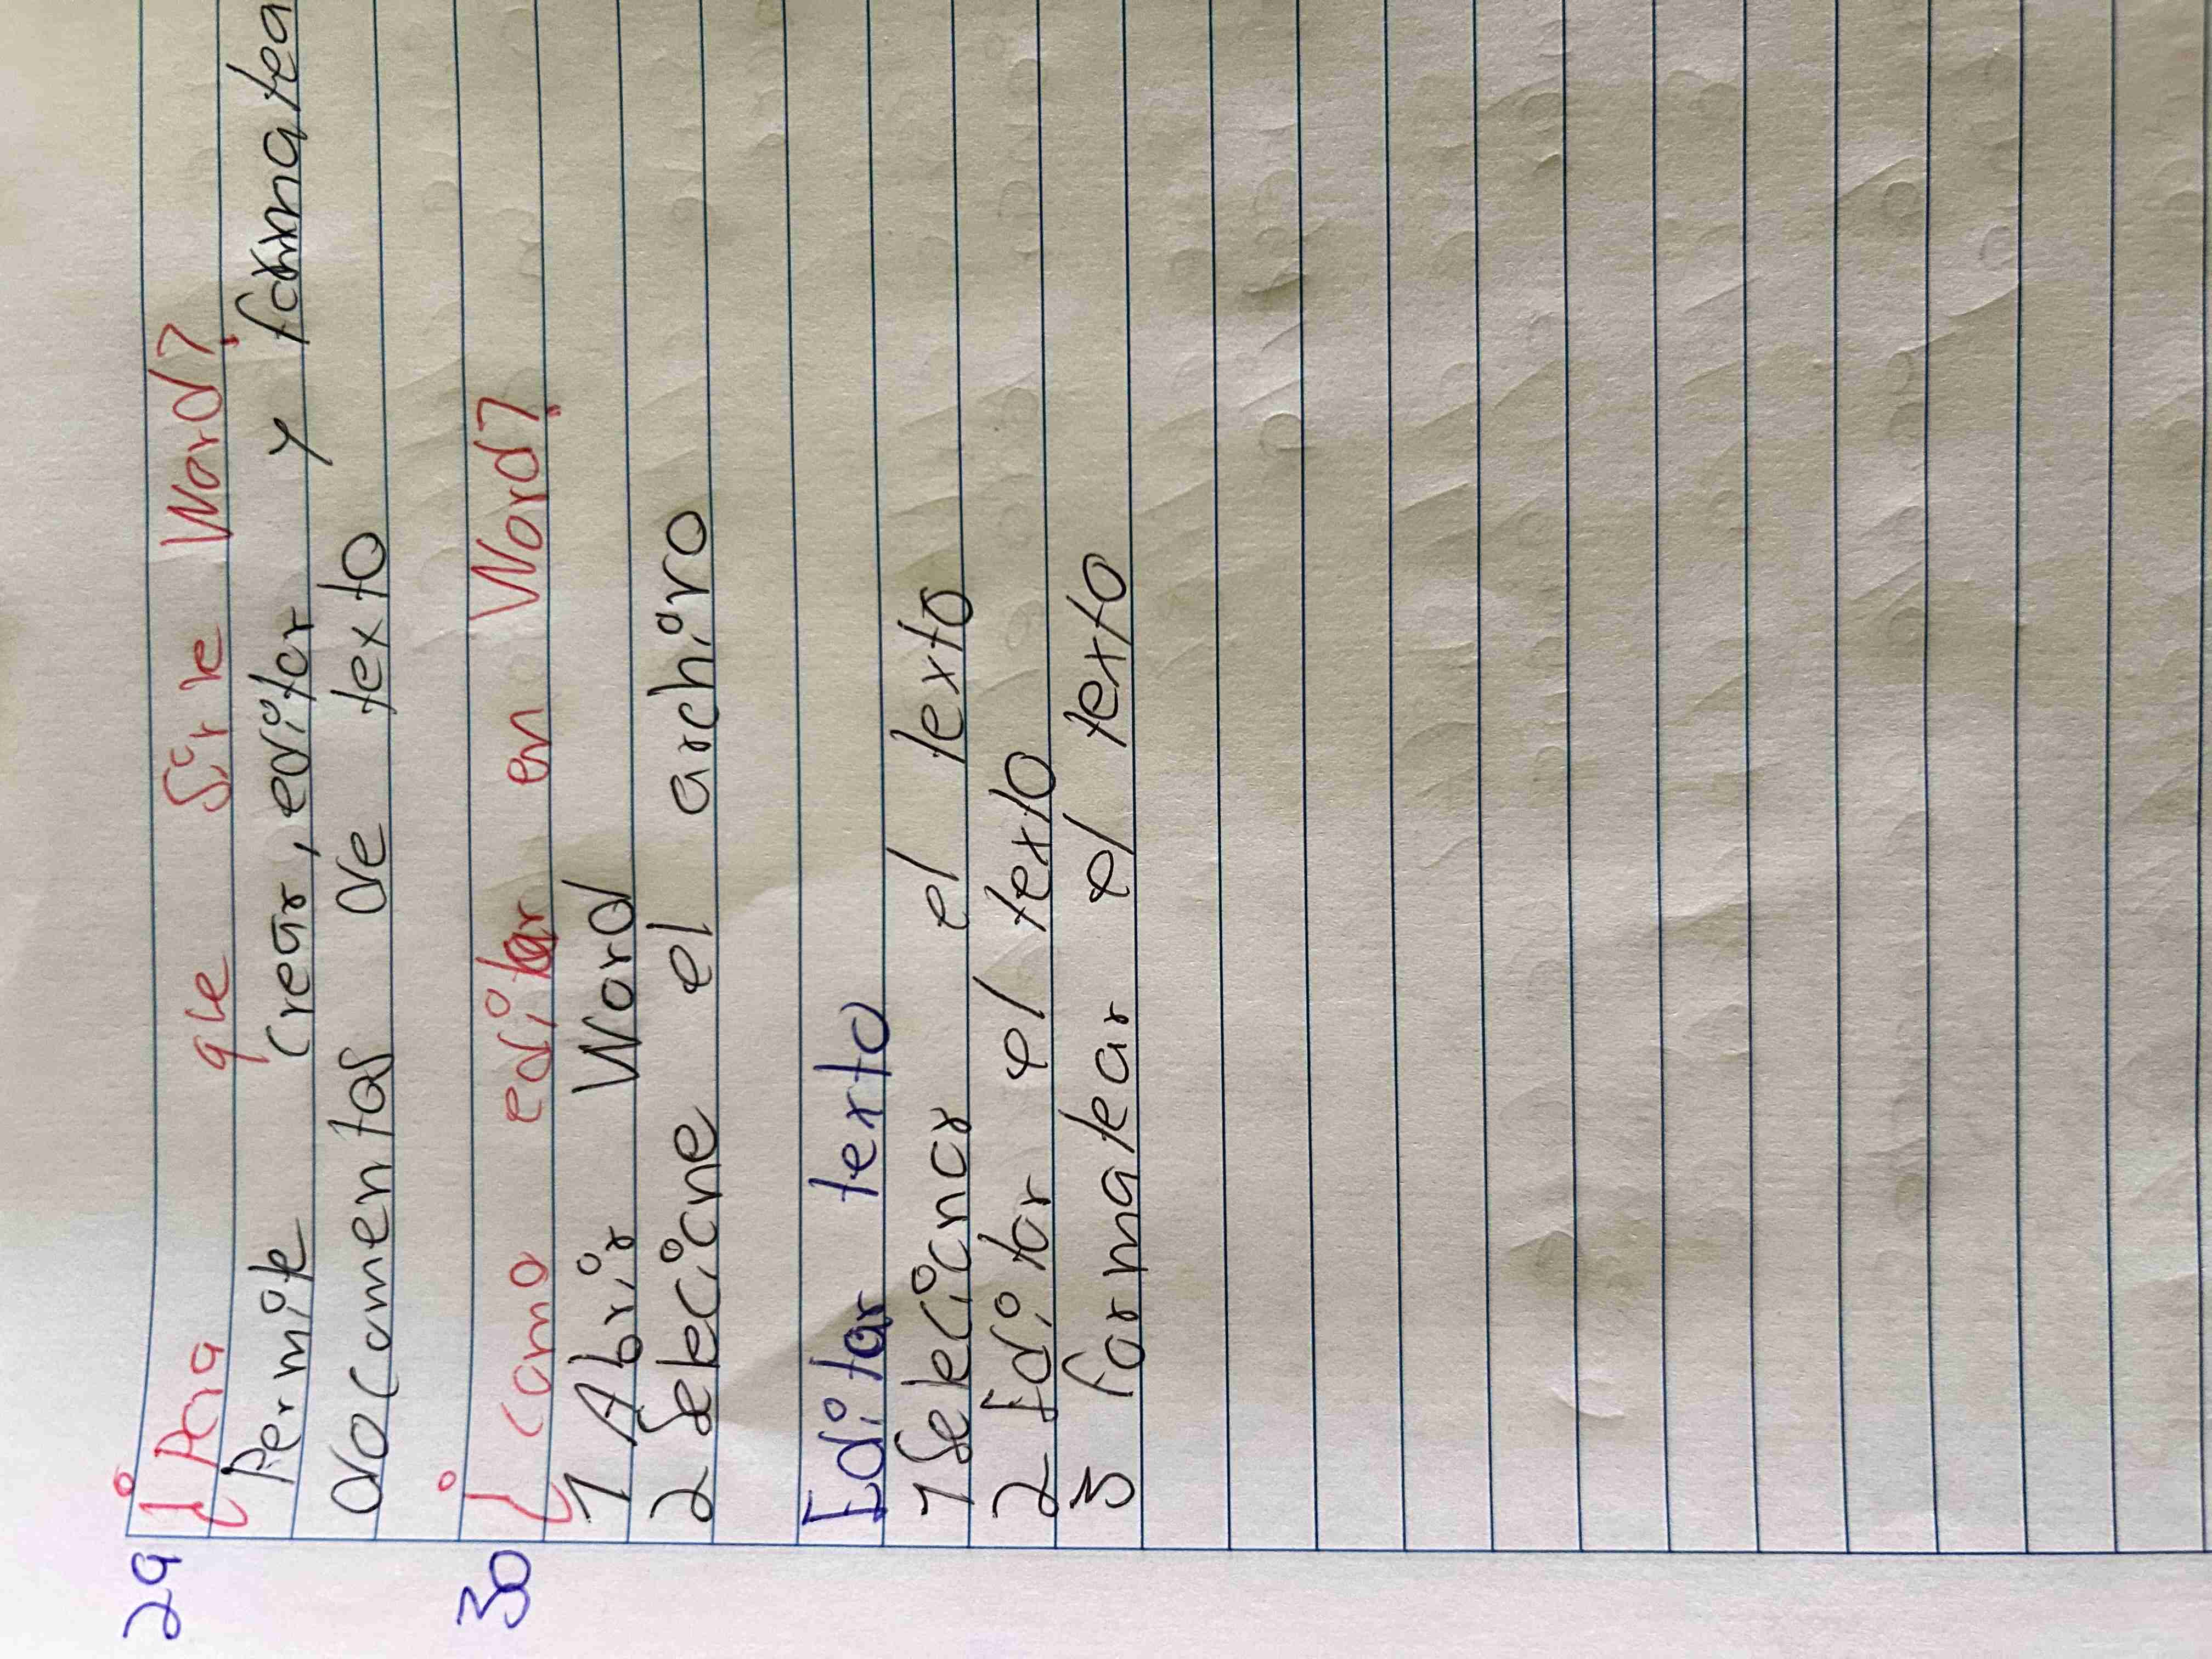 29 ¿Para que Sirve Word?
Permite Crear, editar y formatea
documentos de texto
30 ¿como editar en Word?
1 Abrir Word
2 Selecione el archivo
Editar texto
1 Selecionar el texto
2 Editar el texto
3 formatear el texto